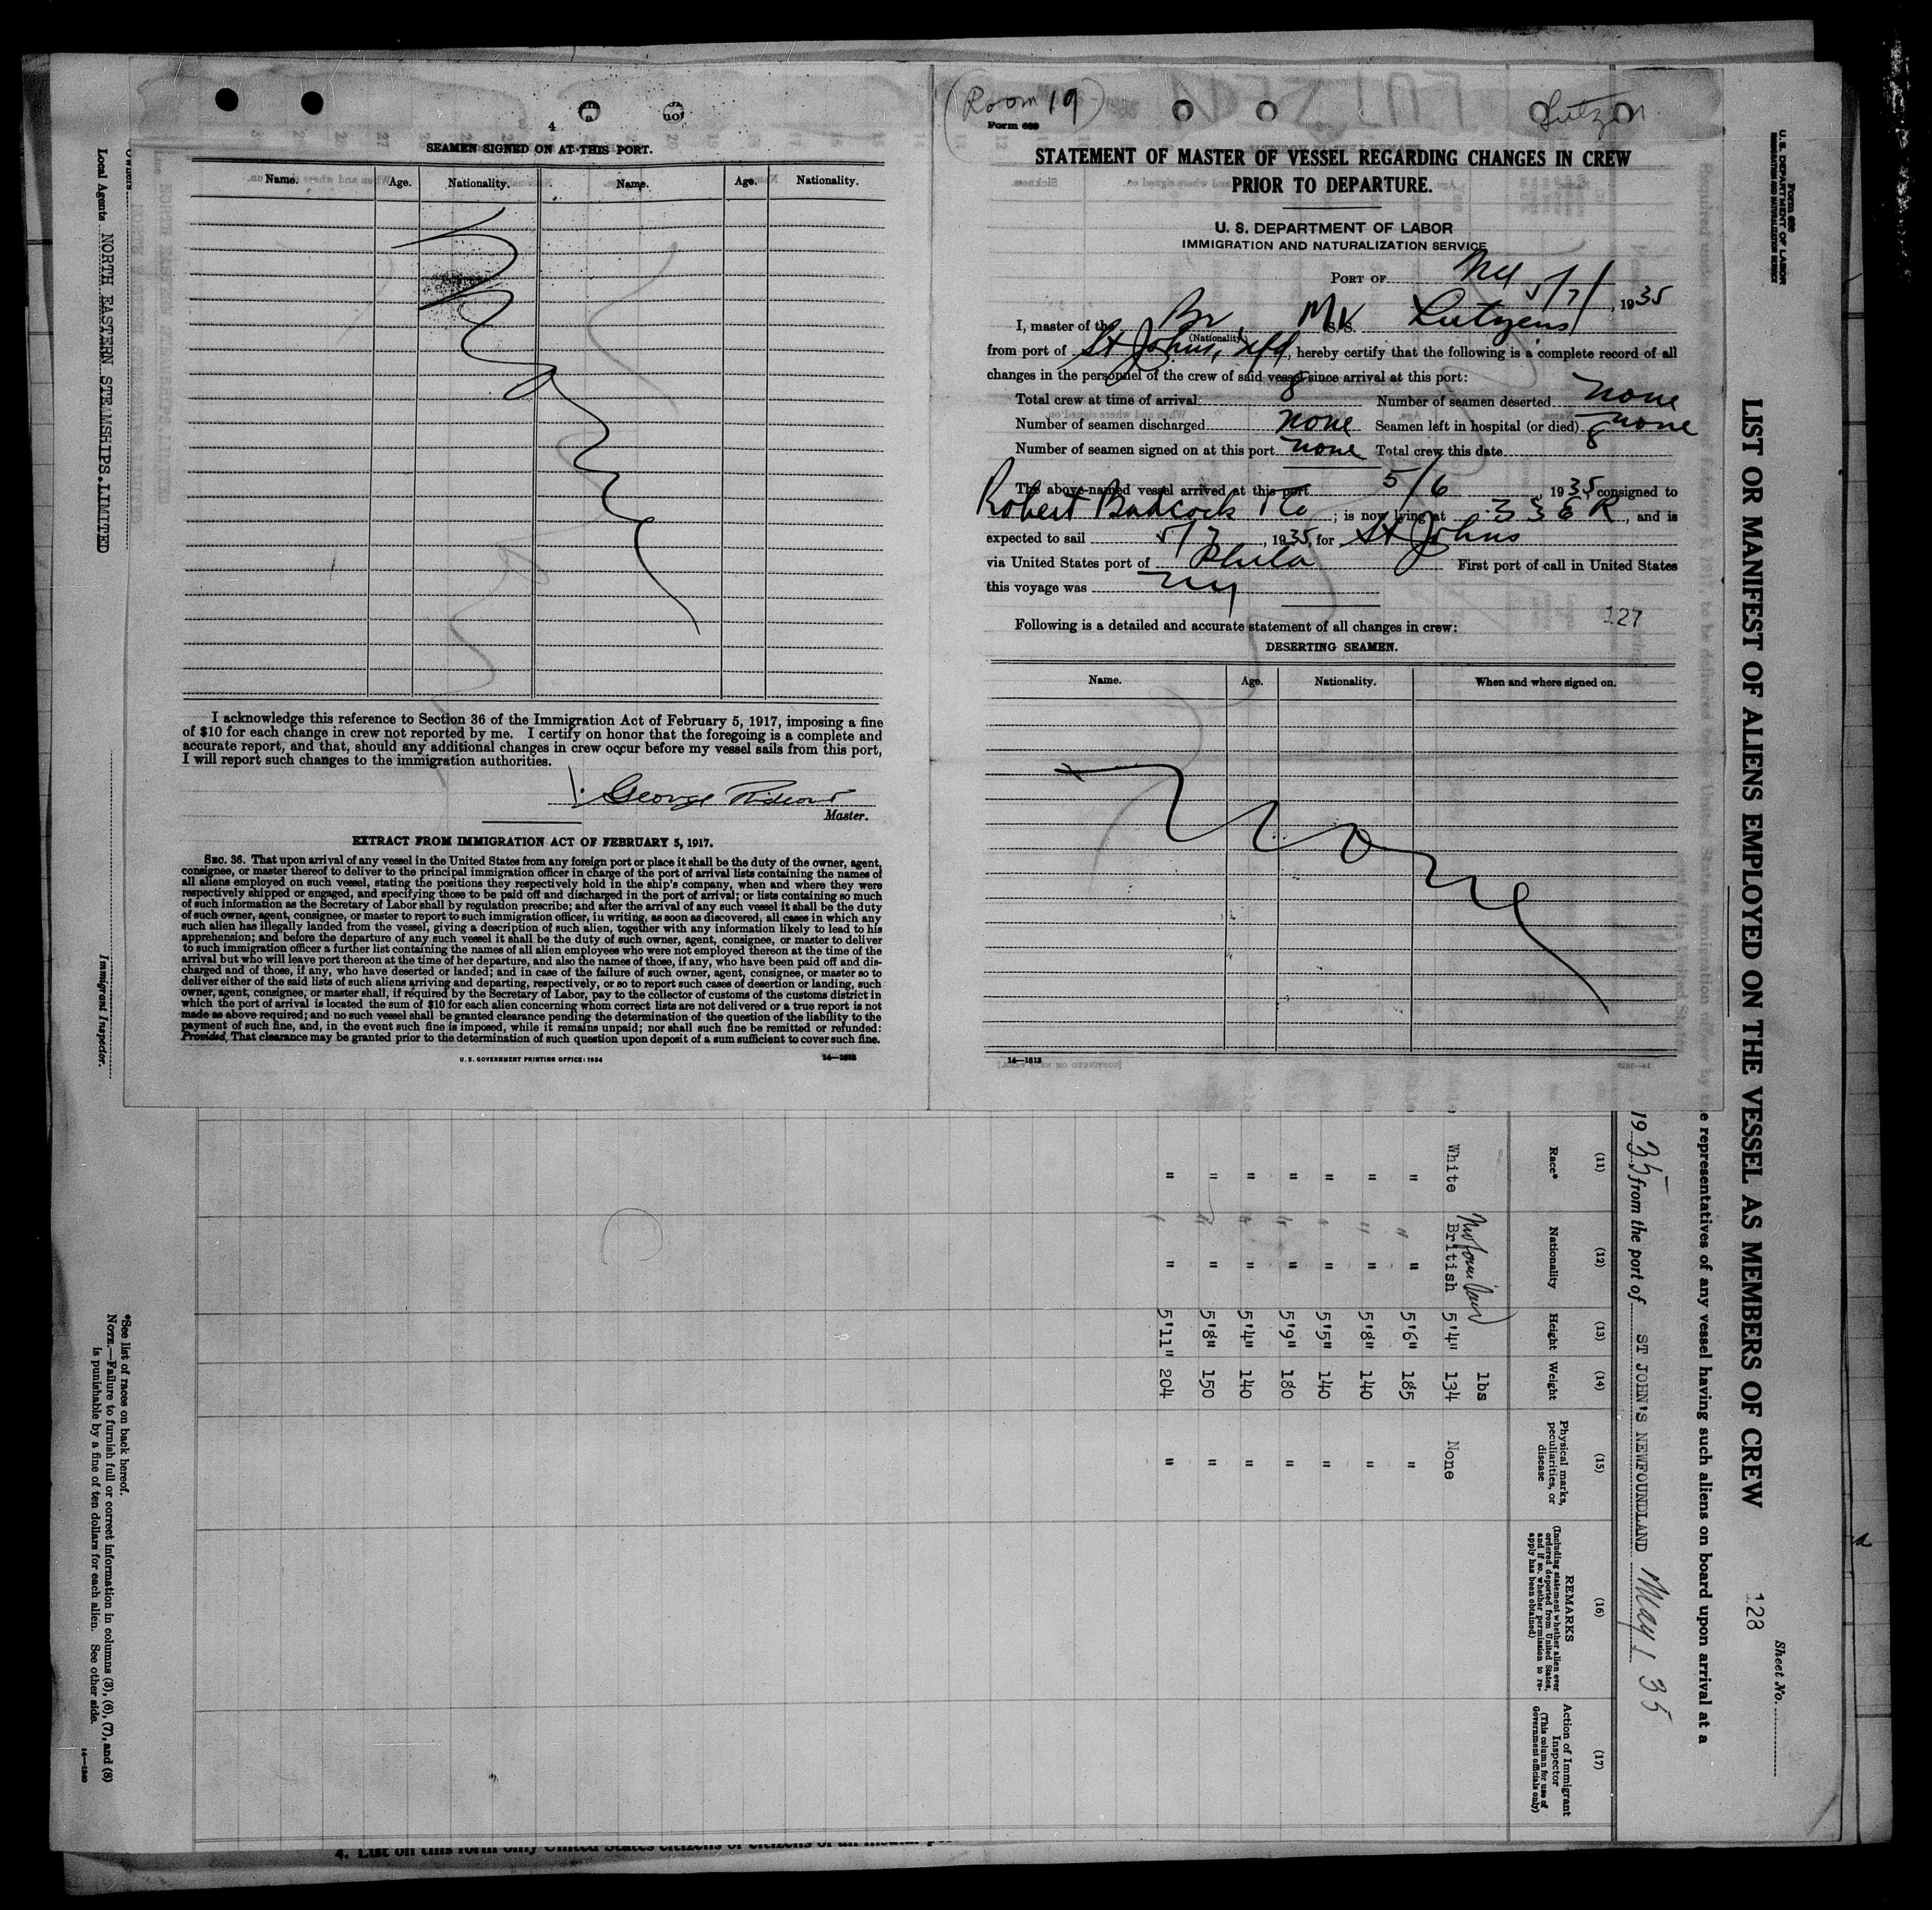 4
SEAMEN SIGNED ON AT THIS PORT.
Name. Age. Nationality. Name. Age. Nationality.
I acknowledge this reference to Section 36 of the Immigration Act of February 5, 1917, imposing a fine
of $10 for each change in crew not reported by me. I certify on honor that the foregoing is a complete and
accurate report, and that, should any additional changes in crew occur before my vessel sails from this port,
I will report such changes to the immigration authorities.
George
Master.
EXTRACT FROM IMMIGRATION ACT OF FEBRUARY 5, 1917.
SEC. 36. That upon arrival of any vessel in the United States from any foreign port or place it shall be the duty of the owner, agent,
consignee, or master thereof to deliver to the principal immigration officer in charge of the port of arrival lists containing the names of
all aliens employed on such vessel, stating the positions they respectively hold in the ship's company, when and where they were
respectively shipped or engaged, and specifying those to be paid off and discharged in the port of arrival; or lists containing so much
of such information as the Secretary of Labor shall by regulation prescribe; and after the arrival of any such vessel it shall be the duty
of such owner, agent, consignee, or master to report to such immigration officer, in writing, as soon as discovered, all cases in which any
such alien has illegally landed from the vessel, giving a description of such alien, together with any information likely to lead to his
apprehension; and before the departure of any such vessel it shall be the duty of such owner, agent, consignee, or master to deliver
to such immigration officer a further list containing the names of all alien employees who were not employed thereon at the time of the
arrival but who will leave port thereon at the time of her departure, and also the names of those, if any, who have been paid off and dis-
charged and of those, if any, who have deserted or landed; and in case of the failure of such owner, agent, consignee, or master so to
deliver either of the said lists of such aliens arriving and departing, respectively, or so to report such cases of desertion or landing, such
owner, agent, consignee, or master shall, if required by the Secretary of Labor, pay to the collector of customs of the customs district in
which the port of arrival is located the sum of $10 for each alien concerning whom correct lists are not delivered or a true report is not
made as above required; and no such vessel shall be granted clearance pending the determination of the question of the liability to the
payment of such fine, and, in the event such fine is imposed, while it remains unpaid; nor shall such fine be remitted or refunded:
Provided, That clearance may be granted prior to the determination of such question upon deposit of a sum sufficient to cover such fine.
U. S. GOVERNMENT PRINTING OFFICE: 1934
(Room 19)
Lutzen
Form 689
STATEMENT OF MASTER OF VESSEL REGARDING CHANGES IN CREW
PRIOR TO DEPARTURE.
U. S. DEPARTMENT OF LABOR
IMMIGRATION AND NATURALIZATION SERVICE
PORT OF NY 5/7/, 1935
I, master of the Br MV S.S. Lutzens
(Nationality)
from port of St Johns, Nfd, hereby certify that the following is a complete record of all
changes in the personnel of the crew of said vessel since arrival at this port:
Total crew at time of arrival 8 Number of seamen deserted none
Number of seamen discharged none Seamen left in hospital (or died) none
Number of seamen signed on at this port none Total crew this date 8
The above-named vessel arrived at this port 5/6, 1935, consigned to
Robert Badcock & Co; is now lying at 33 E R, and is
expected to sail 5/7, 1935, for St Johns
via United States port of Phila First port of call in United States
this voyage was NY
127
Following is a detailed and accurate statement of all changes in crew:
DESERTING SEAMEN.
Name. Age. Nationality. When and where signed on.
None
14—1613
Form 689
U. S. DEPARTMENT OF LABOR
IMMIGRATION AND NATURALIZATION SERVICE
Sheet No.
LIST OR MANIFEST OF ALIENS EMPLOYED ON THE VESSEL AS MEMBERS OF CREW 128
representatives of any vessel having such aliens on board upon arrival at a
1935 from the port of ST JOHN'S NEWFOUNDLAND May 1 35
(11) (12) (13) (14) (15) (16) (17)
Race* Nationality Height Weight Physical marks, peculiarities, or disease REMARKS (Including statement whether alien ever ordered deported from United States, and if so, whether permission to re-apply has been obtained) Action of Immigrant Inspector (This column for use of Government officials only)
lbs
Newfoundland
White British 5'4" 134 None
" " 5'6" 185 "
" " 5'8" 140 "
" " 5'5" 140 "
" " 5'9" 180 "
" " 5'4" 140 "
" " 5'8" 150 "
" " 5'11" 204 "
Owners
Local Agents NORTH EASTERN STEAMSHIPS.LIMITED
Immigrant Inspector.
*See list of races on back hereof.
NOTE.—Failure to furnish full or correct information in columns (3), (6), (7), and (8)
is punishable by a fine of ten dollars for each alien. See other side.
14—1240
4. List on this form only United States citizens or citizens of an